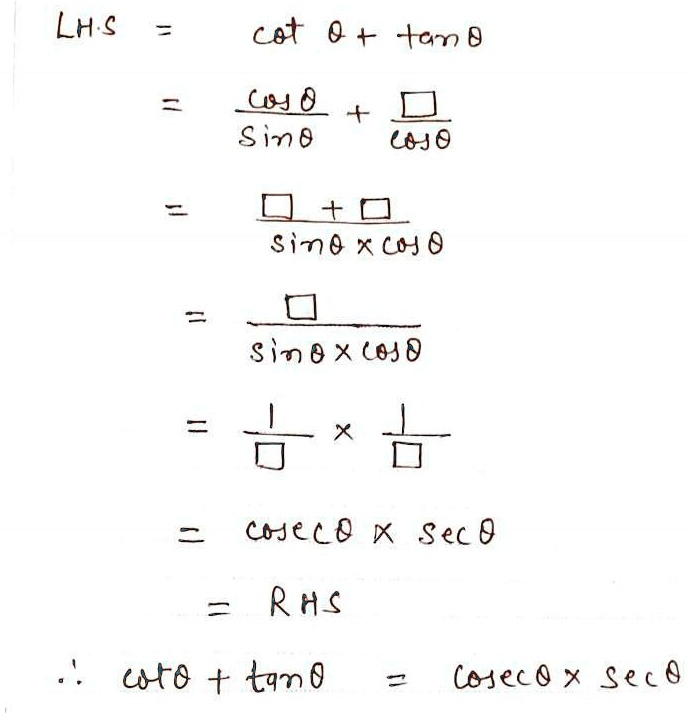 LH.S = cot θ + tan θ
= cos θ / sin θ + □ / cos θ
= □ + □ / sin θ × cos θ
= □ / sin θ × cos θ
= 1 / □ × 1 / □
= cosec θ × sec θ
= RHS
∴ cot θ + tan θ = cosec θ × sec θ